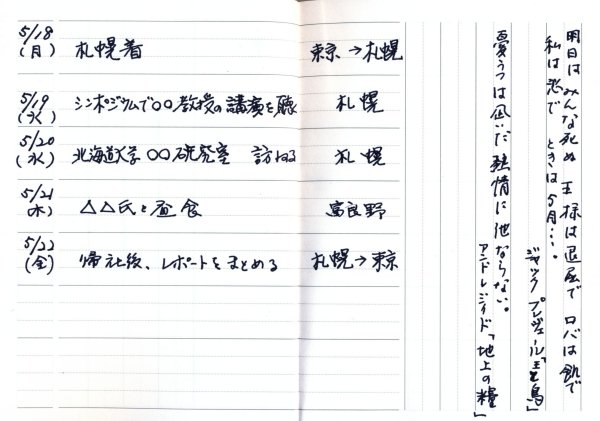 5/18
(月) 札幌着 東京→札幌
5/19
(火) シンポジウムで〇〇教授の講演を聴 札幌
5/20
(水) 北海道大学〇〇研究室 訪ねる 札幌
5/21
(木) △△氏と昼食 富良野
5/22
(金) 帰社後、レポートをまとめる 札幌→東京
明日はみんな死ぬ 王様は退屈で ロバは飢で
私は恋で ときは5月…。
ジャック プレヴェール「王と鳥」
憂うつは凪いだ熱情に他ならない。
アンドレ・ジイド「地上の糧」